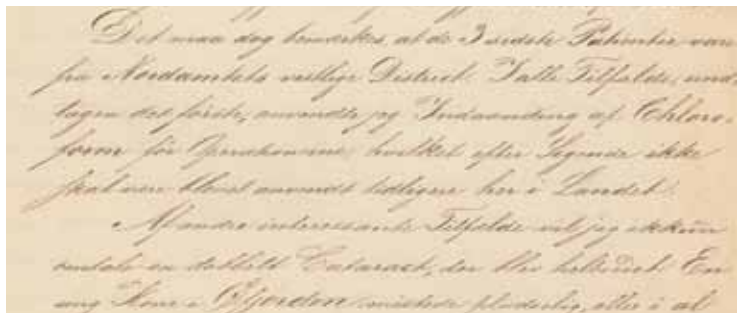 Det maa dog bemærkes, at de 3 sidste Patienter vare
fra Nordamtets vestlige District. I alle Tilfælde, und-
tagen det første, anvendte jeg Indaanding af Chloro-
form før Operationerne hvilket efter Sigende ikke
skal være blevet anvendt tidligere her i Landet.
Af andre interessante Tilfælde vil jeg ikkun
omtale en dobbelt Cataract, der blev helbredet. En
ung Kone i Öfjorden mistede pludselig, eller i al